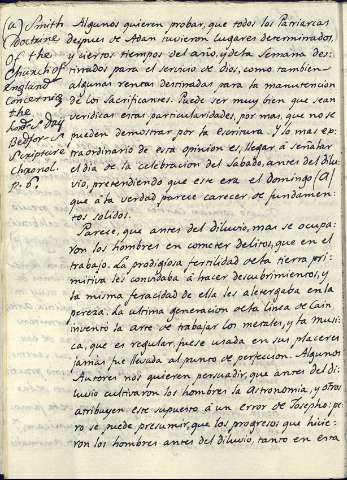 (a) Smith
Doctrine
of the
Church of
england
concerning
the
Lord's day
Bedfor-s
Scripture
Chronol.
p. 6.
Algunos quieren probar, que todos los Patriarcas
despues de Adan tuvieron lugares determinados,
y ciertos tiempos del año, y de la semana des-
tinados para el servicio de Dios, como tambien
algunas rentas destinadas para la manutencion
de los sacrificantes. Puede ser muy bien que sean
veridicas estas particularidades, por mas, que no se
pueden demostrar por la escritura. Y lo mas ex-
traordinario de esta opinion es, llegar á señalar
el dia de la celebracion del sabado, antes del dilu-
vio, pretendiendo que este era el domingo (a)
que á la verdad parece carecer de fundamen-
tos solidos.
Parece, que antes del diluvio, mas se ocupa-
ron los hombres en cometer delitos, que en el
trabajo. La prodigiosa fertilidad de la tierra pri-
mitiva les convidaba á hacer descubrimientos, y
la misma feracidad de ella les aletergaba en la
pereza. La ultima generacion de la linea de Cain
inventó la arte de trabajar los metales, y la musi-
ca, que es regular fuese usada en sus placeres
jamás fue llevada al punto de perfeccion. Algunos
Autores nos quieren persuadir, que antes del di-
luvio cultivaron los hombres la Astronomia, y otros
atribuyen este supuesto á un error de Josepho: pe-
ro se puede presumir, que los progresos que hicie-
ron los hombres antes del diluvio, tanto en esta